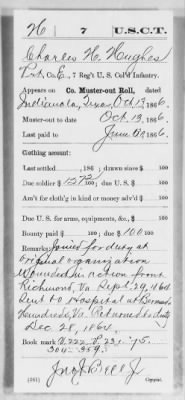 H 7 U.S.C.T.
Charles H. Hughes
Pvt, Co. E, 7 Reg't U. S. Col'd Infantry.
Appears on Co. Muster-out Roll, dated
Indianola, Texas, Oct 13, 1866.
Muster-out to date Oct. 13, 1866.
Last paid to June 30, 1866.
Clothing account:
Last settled , 186 ; drawn since $ 100
Due soldier $ 100; due U. S. $ 100
Am't for cloth'g in kind or money adv'd $ 100
Due U. S. for arms, equipments, &c., $ 100
Bounty paid $ 100; due $ 100 100
Remarks: Joined for duty at
original organization
Wounded in action front
Richmond, Va. Sept. 29, 1864.
Sent to Hospital at Bermuda
Hundreds, Va. Returned to duty
Dec. 28, 1864.
Book mark:
Copyist.